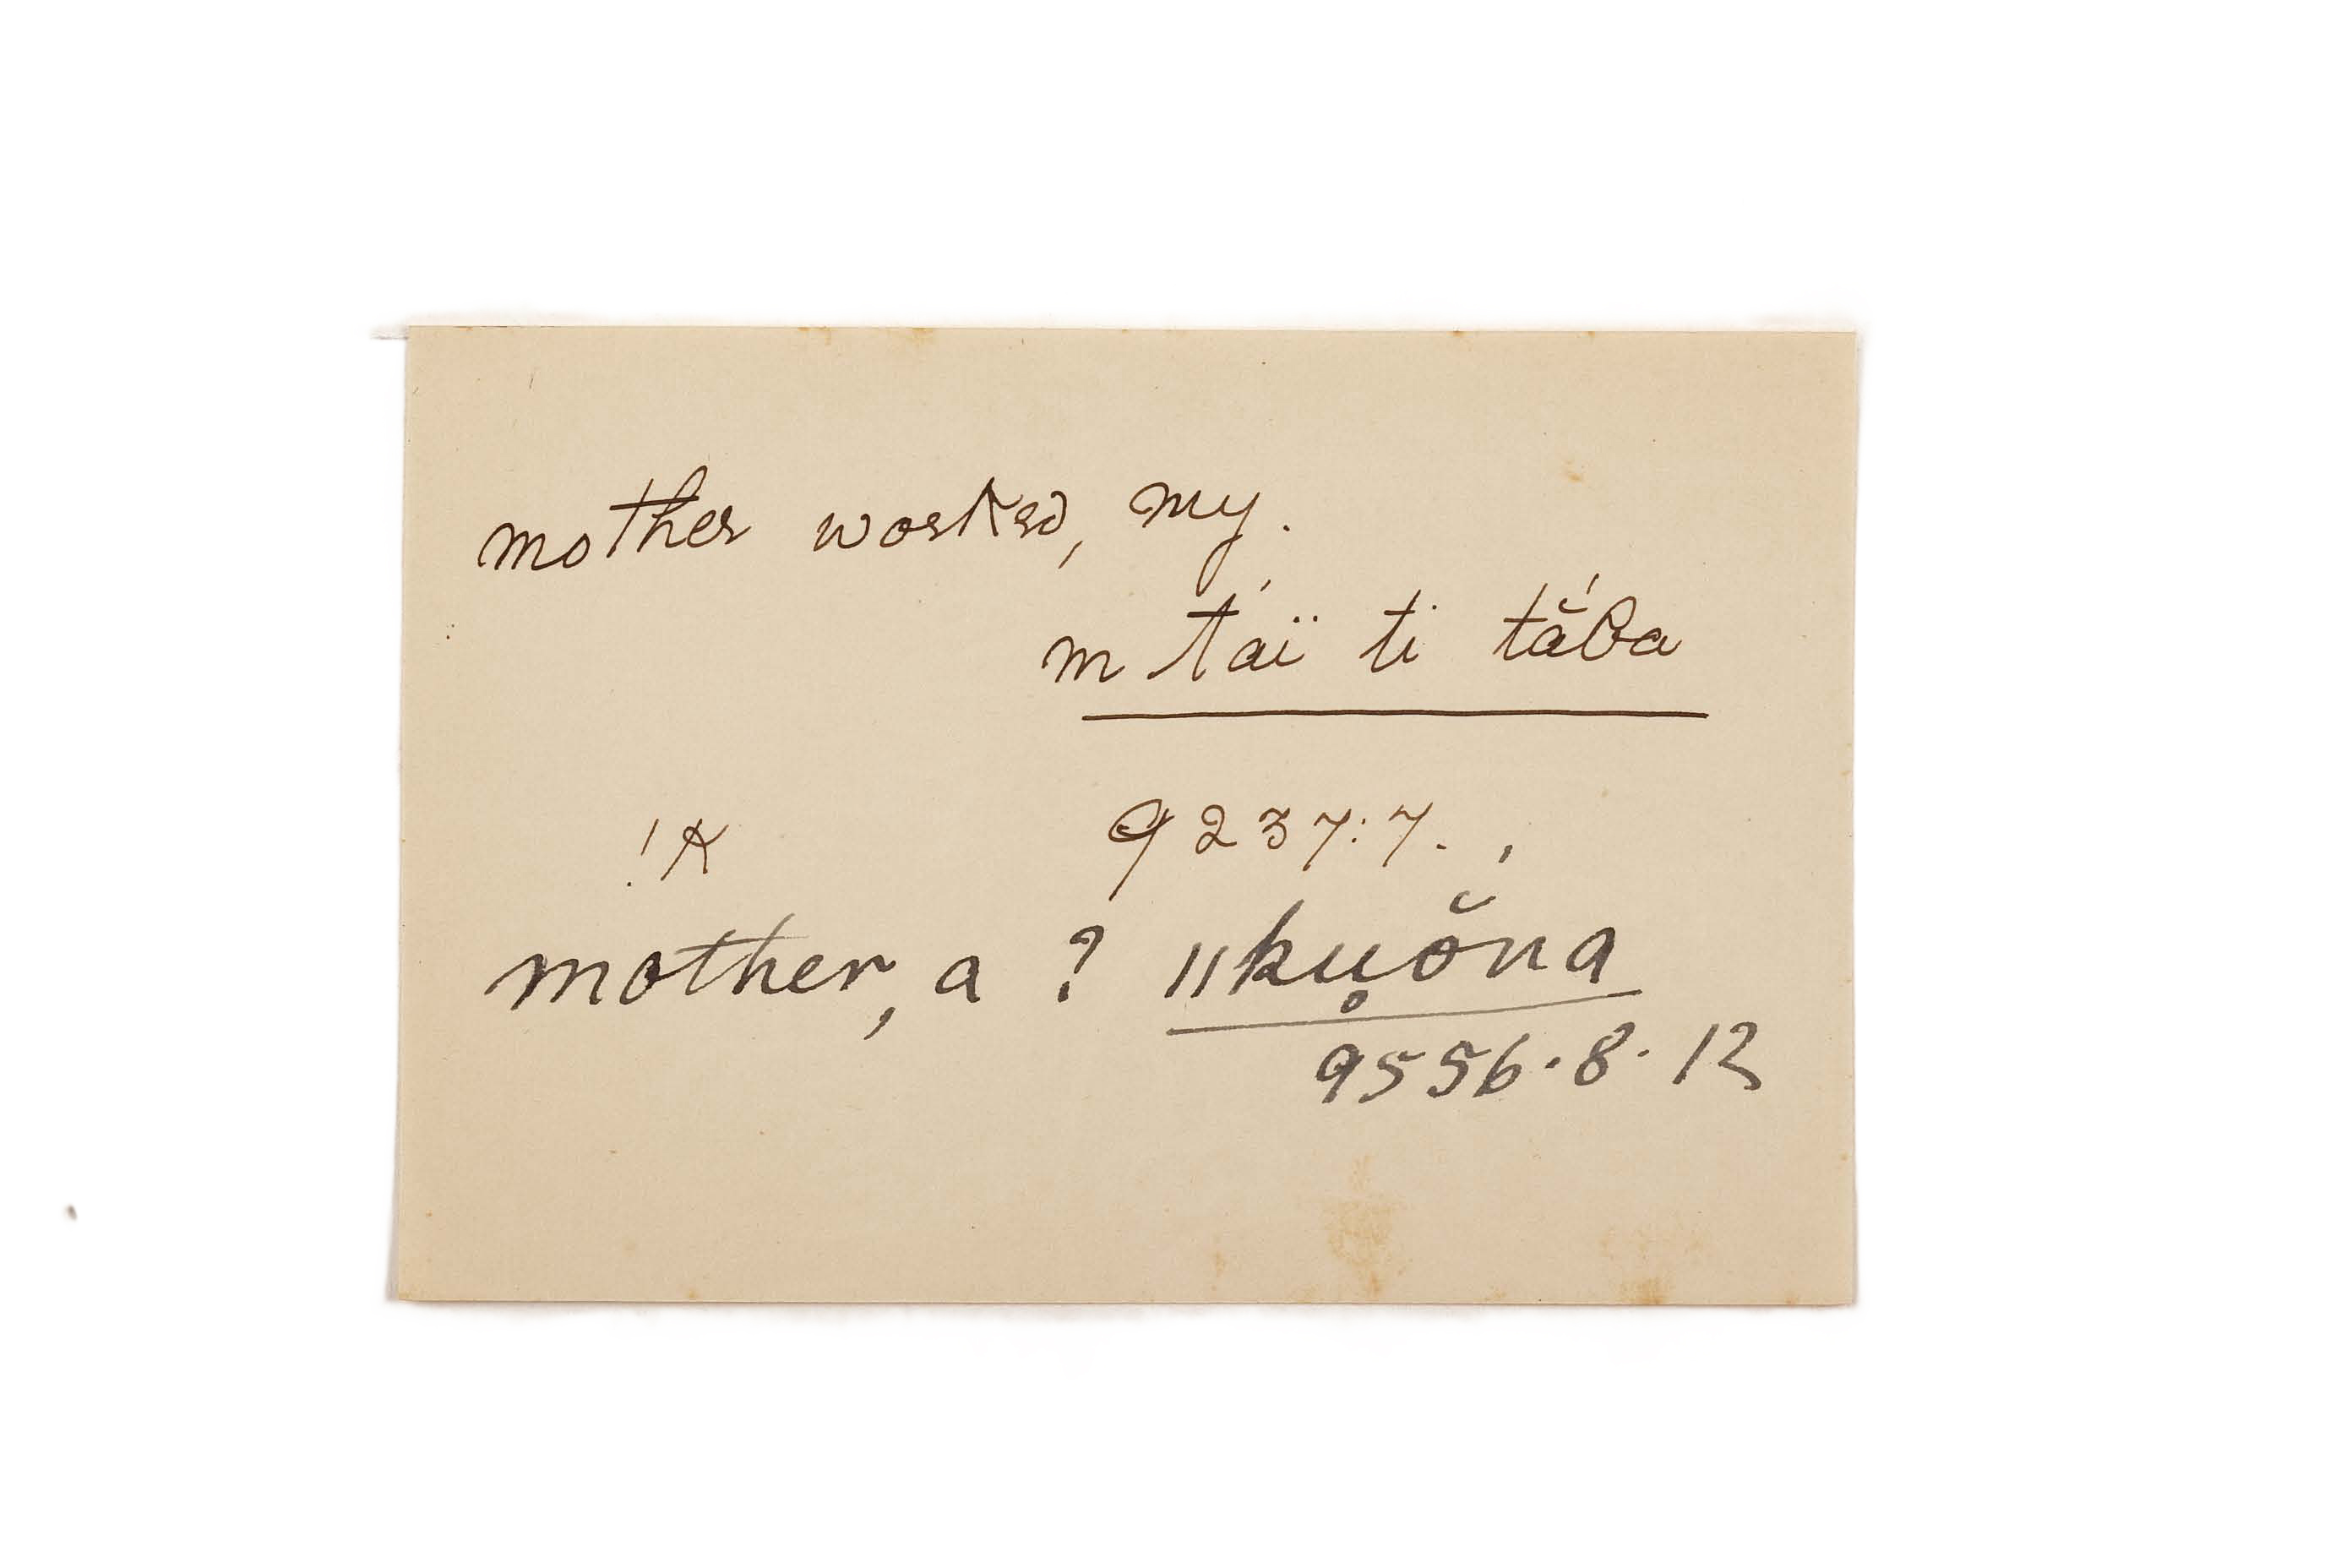 mother worked, my.
m táï ti tắba
9237:7.
!k
mother, a ? ǁku̥ŏ́na
9556.8.12